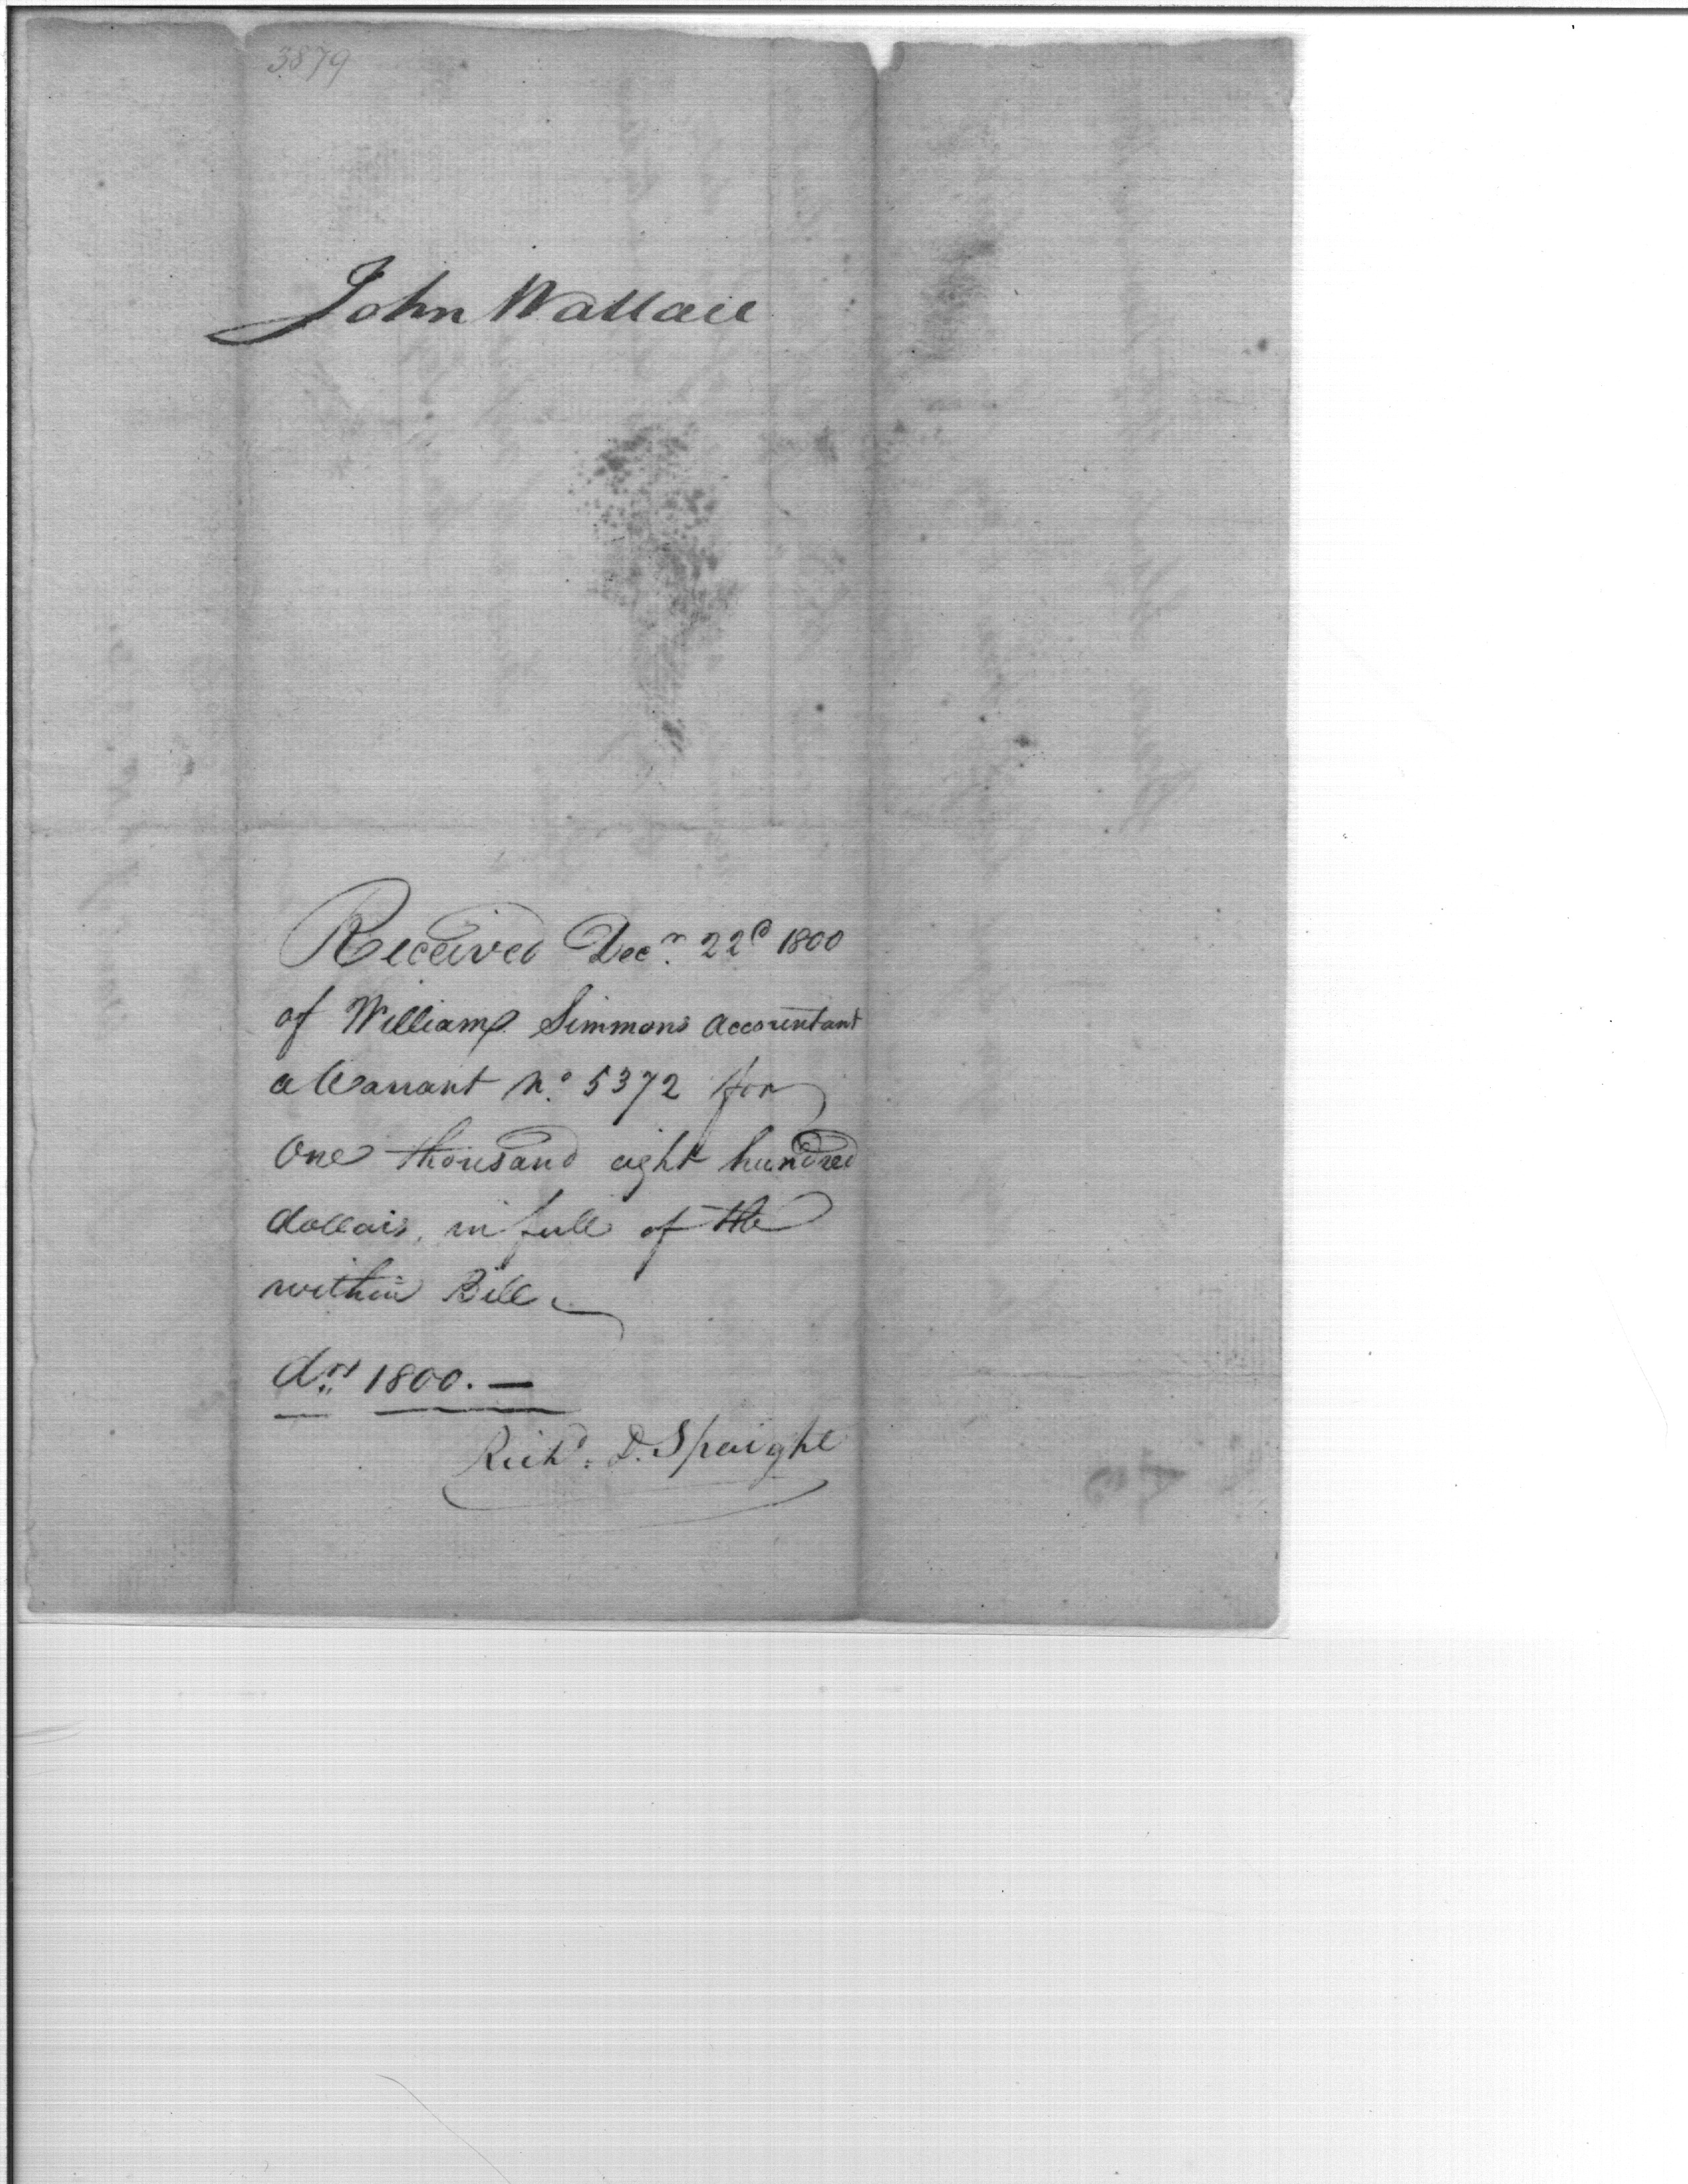 3879
John Wallace
Received Decr. 22d 1800
of William Simmons Accountant
a Warrant No. 5372 for
One thousand eight hundred
dollars, in full of the
within Bill.
drs 1800.—
Richd. D. Spaight